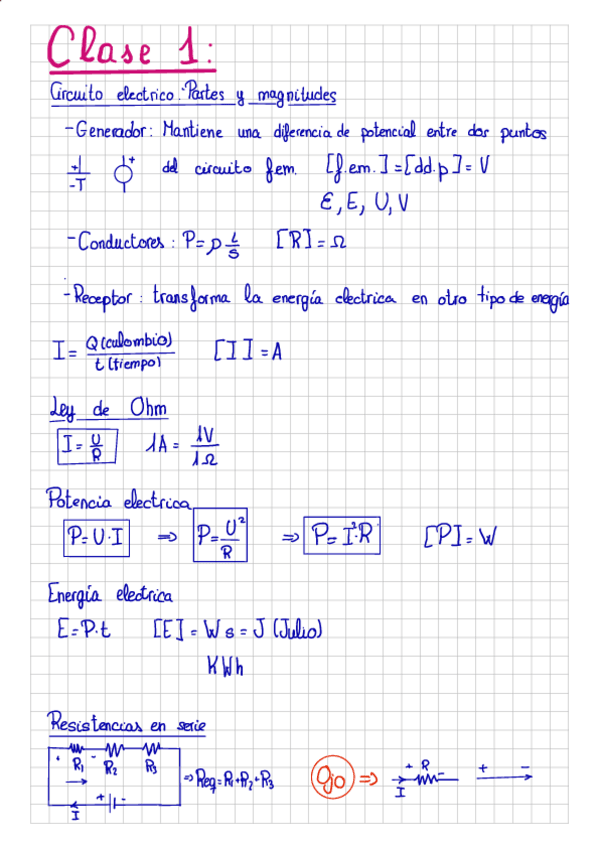 Clase 1:
Circuito electrico. Partes y magnitudes
-Generador: Mantiene una diferencia de potencial entre dos puntos
+ -T + del circuito f.em. [f.em.]=[dd.p]= V
Ɛ, E, U, V
-Conductores: P=ρ L/S [R]= Ω
-Receptor: transforma la energía electrica en otro tipo de energía
I= Q(culombio)/t(tiempo) [I]=A
Ley de Ohm
I= U/R 1A= 1V/1Ω
Potencia electrica
P=U·I ⇒ P= U²/R ⇒ P= I²·R [P]= W
Energía electrica
E=P·t [E]= W s = J (Julio)
KWh
Resistencias en serie
+ R₁ - R₂ R₃ ⇒ Req=R₁+R₂+R₃
I + -
Ojo ⇒ + R - I + -